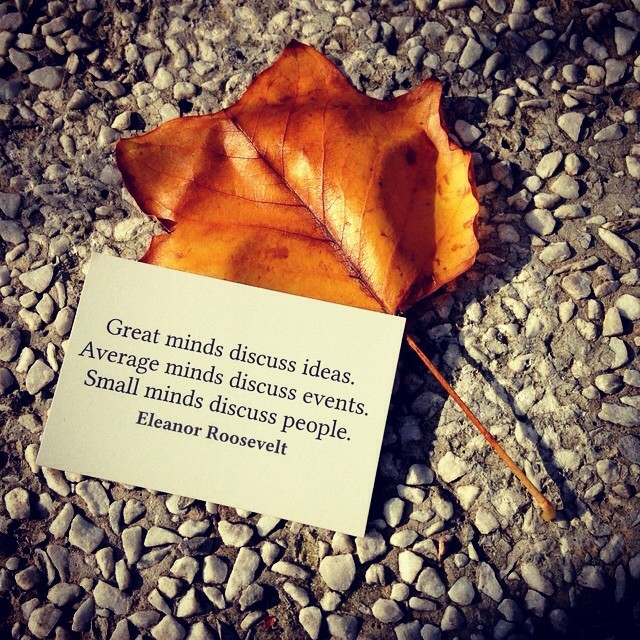 Great minds discuss ideas.
Average minds discuss events.
Small minds discuss people.
Eleanor Roosevelt